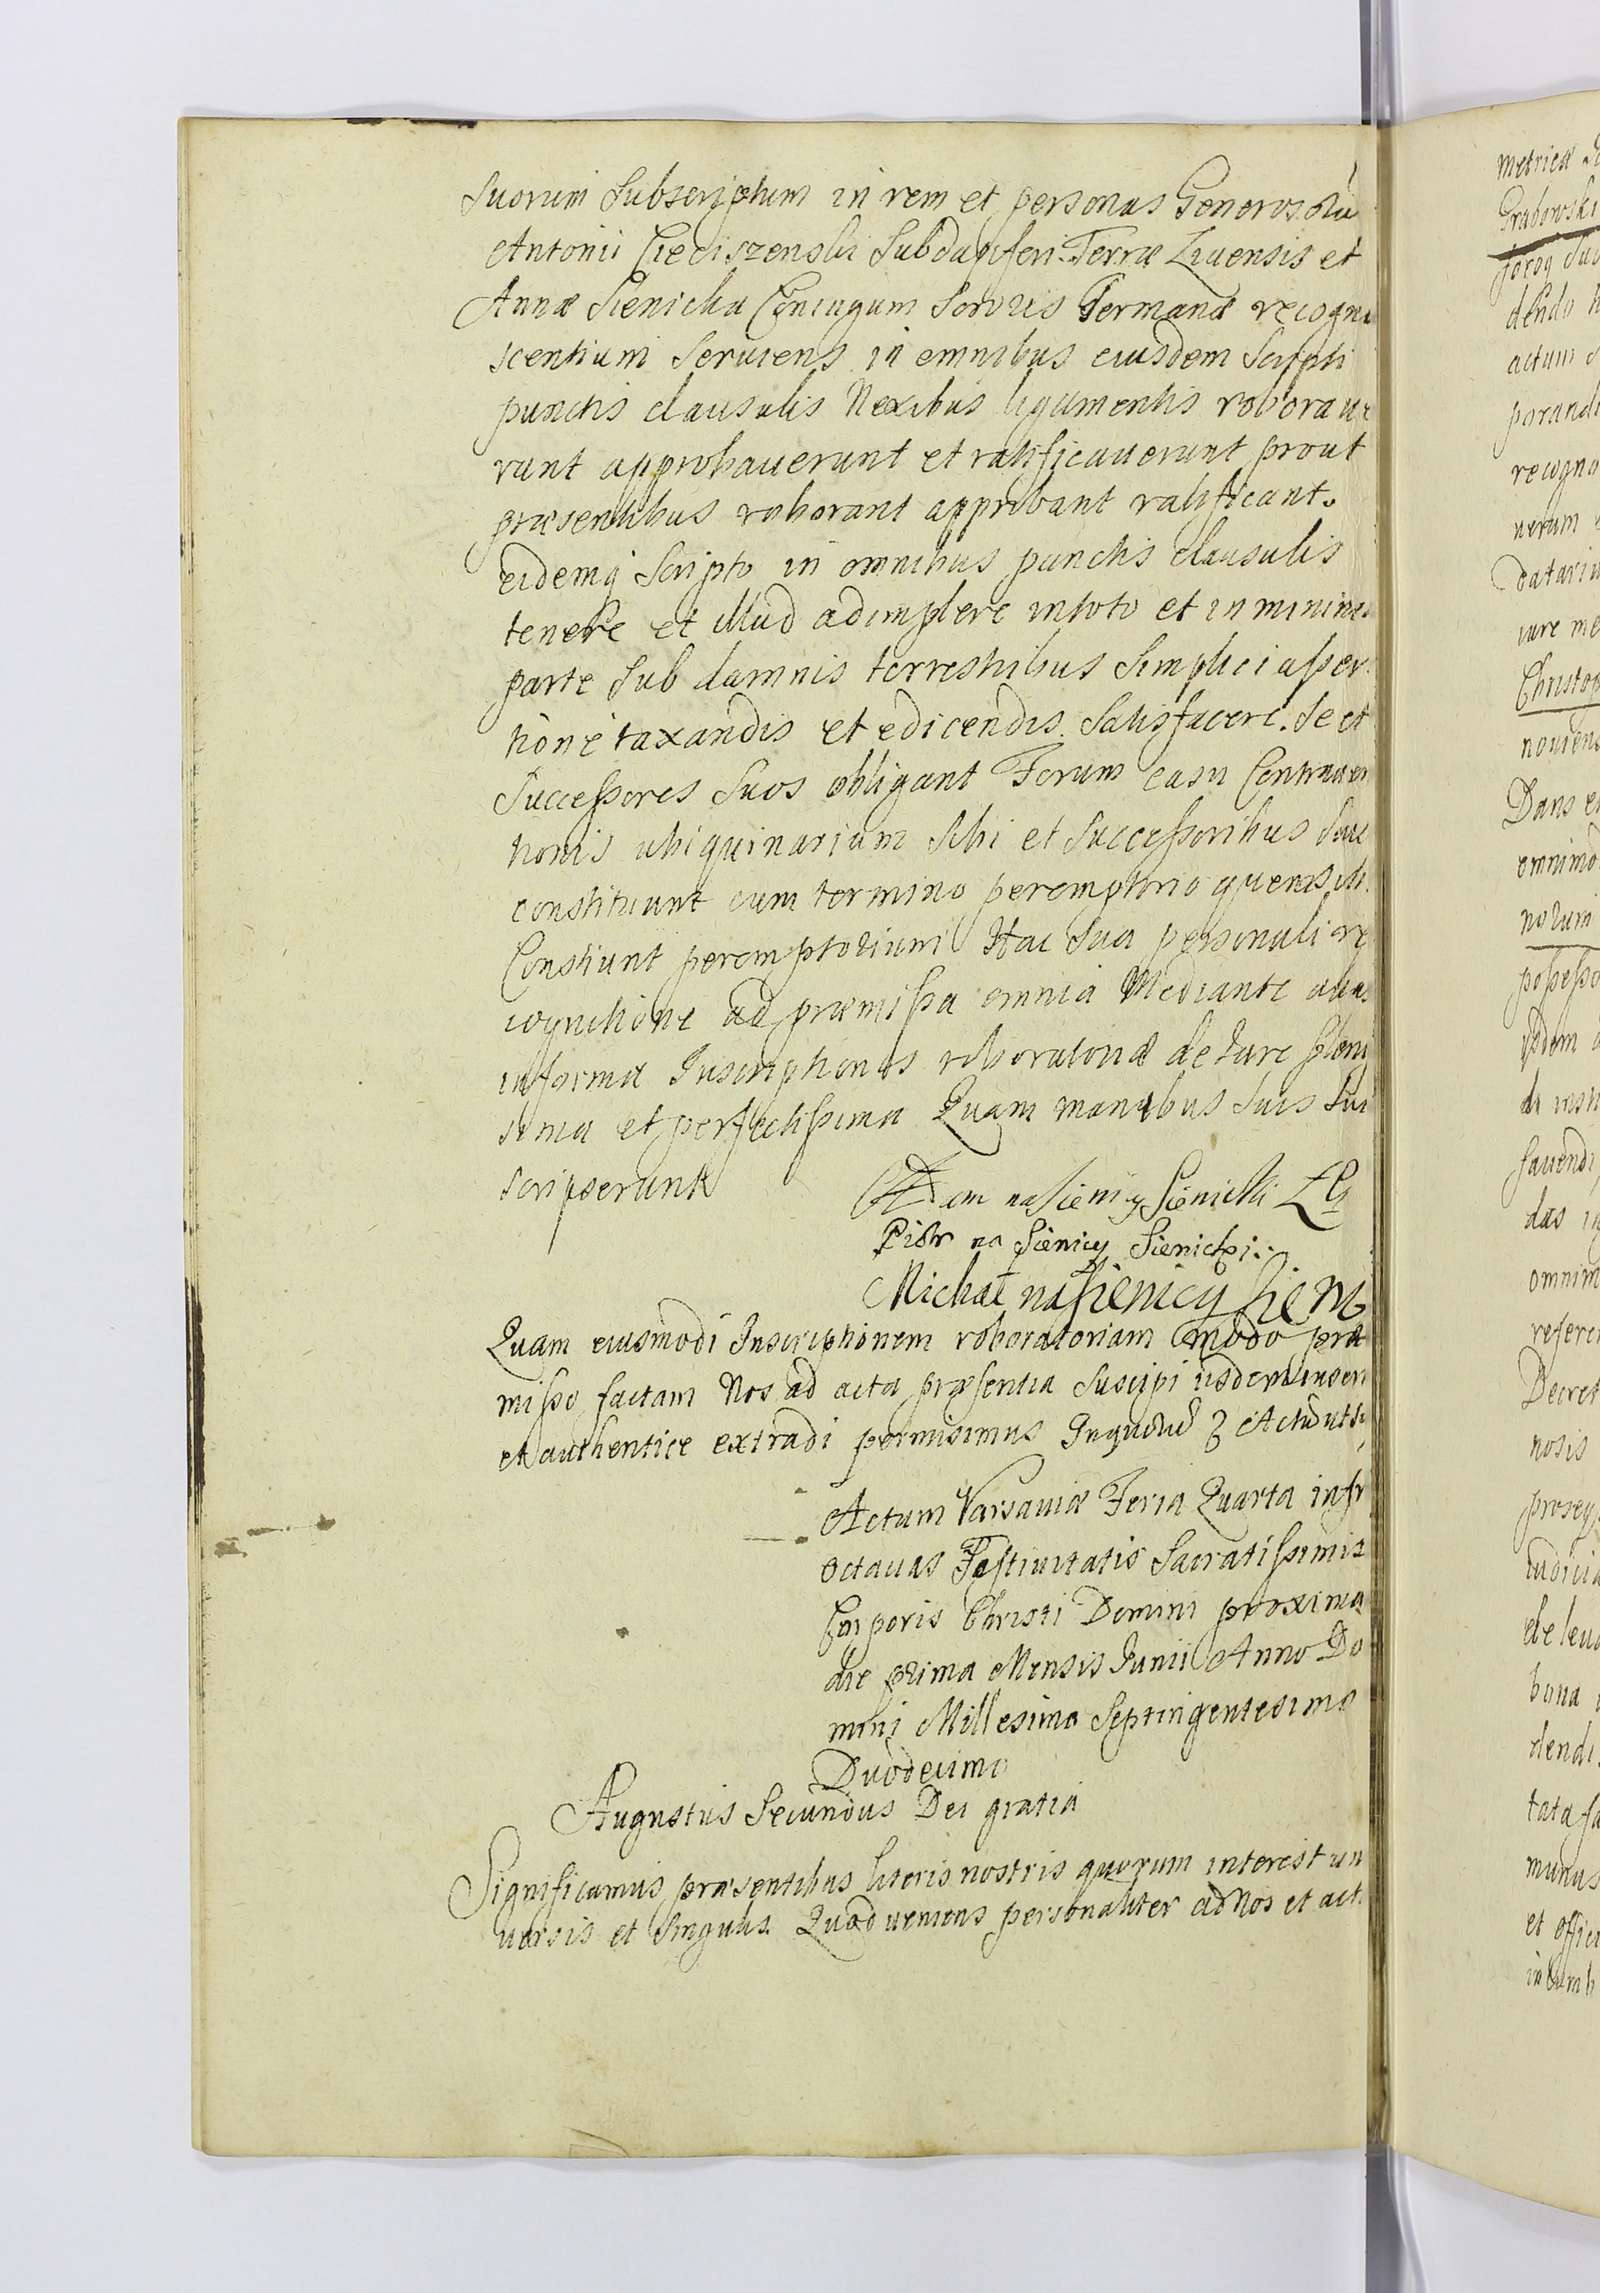 Suorum Subscriptum in rem et personas Generosorū
Antonii Cieciszenski Subdapiferi Terræ Liuensis et
Annæ Sienicka Coniugum Sororis Germanæ recogni
scentium Seruiens in omnibus eiusdem Scripti
punctis clausulis Nexibus ligamentis roboraue
runt approbauerunt et ratificauerunt prout
præsentibus roborant approbant ratificant.
eidemq Scripto in omnibus punctis clausulis
tenere et illud adimplere in toto et in minima
parte Sub damnis terrestribus Simplici asser
tione taxandis et edicendis Satisfacere. Se et
Successores Suos obligant Forum casu Contrauen
tionis ubiquinarium Sibi et Successoribus Suis
constituunt cum termino peremptorio quem sibi
Constiunt peremptorium Hac Sua personali re
cognitione ad præmissa omnia Mediante
in forma Inscriptionis roboratoriæ de Iure pleni
sima et perfectissima Quam manibus Suis Sub
scripserunt
Adam na Sienicy Sienicki
Piotr na Sienicy Sienicki
Michał na Sienicy Sieni
Quam eiusmodi Inscriptionem roboratoriam modo præ
misso factam Nos ad acta præsentia Suscipi iisdem inseri
et authentice extradi permisimus In quorū Actū ut su
Actum Varsauiæ Feria Quarta infr
octauas Festiuitatis Sacratissimi
Corporis Christi Domini proxima
die prima Mensis Iunii Anno Do
mini Millesimo Septingentesimo
Duodecimo
Augustus Secundus Dei gratia
Significamus præsentibus literis nostris quorum interest uni
uersis et Singulis Quod ueniens personaliter ad Nos et act
metricæ
Grabowski
dendo
actum
parandi
recogno
uerum
datariu
iure me
Christop
nouiens
Dans
omnimo
possesso
das
omnim
refere
Decret
nosis
proseq
iudicia
bona
dendi
tata
munus
et offici